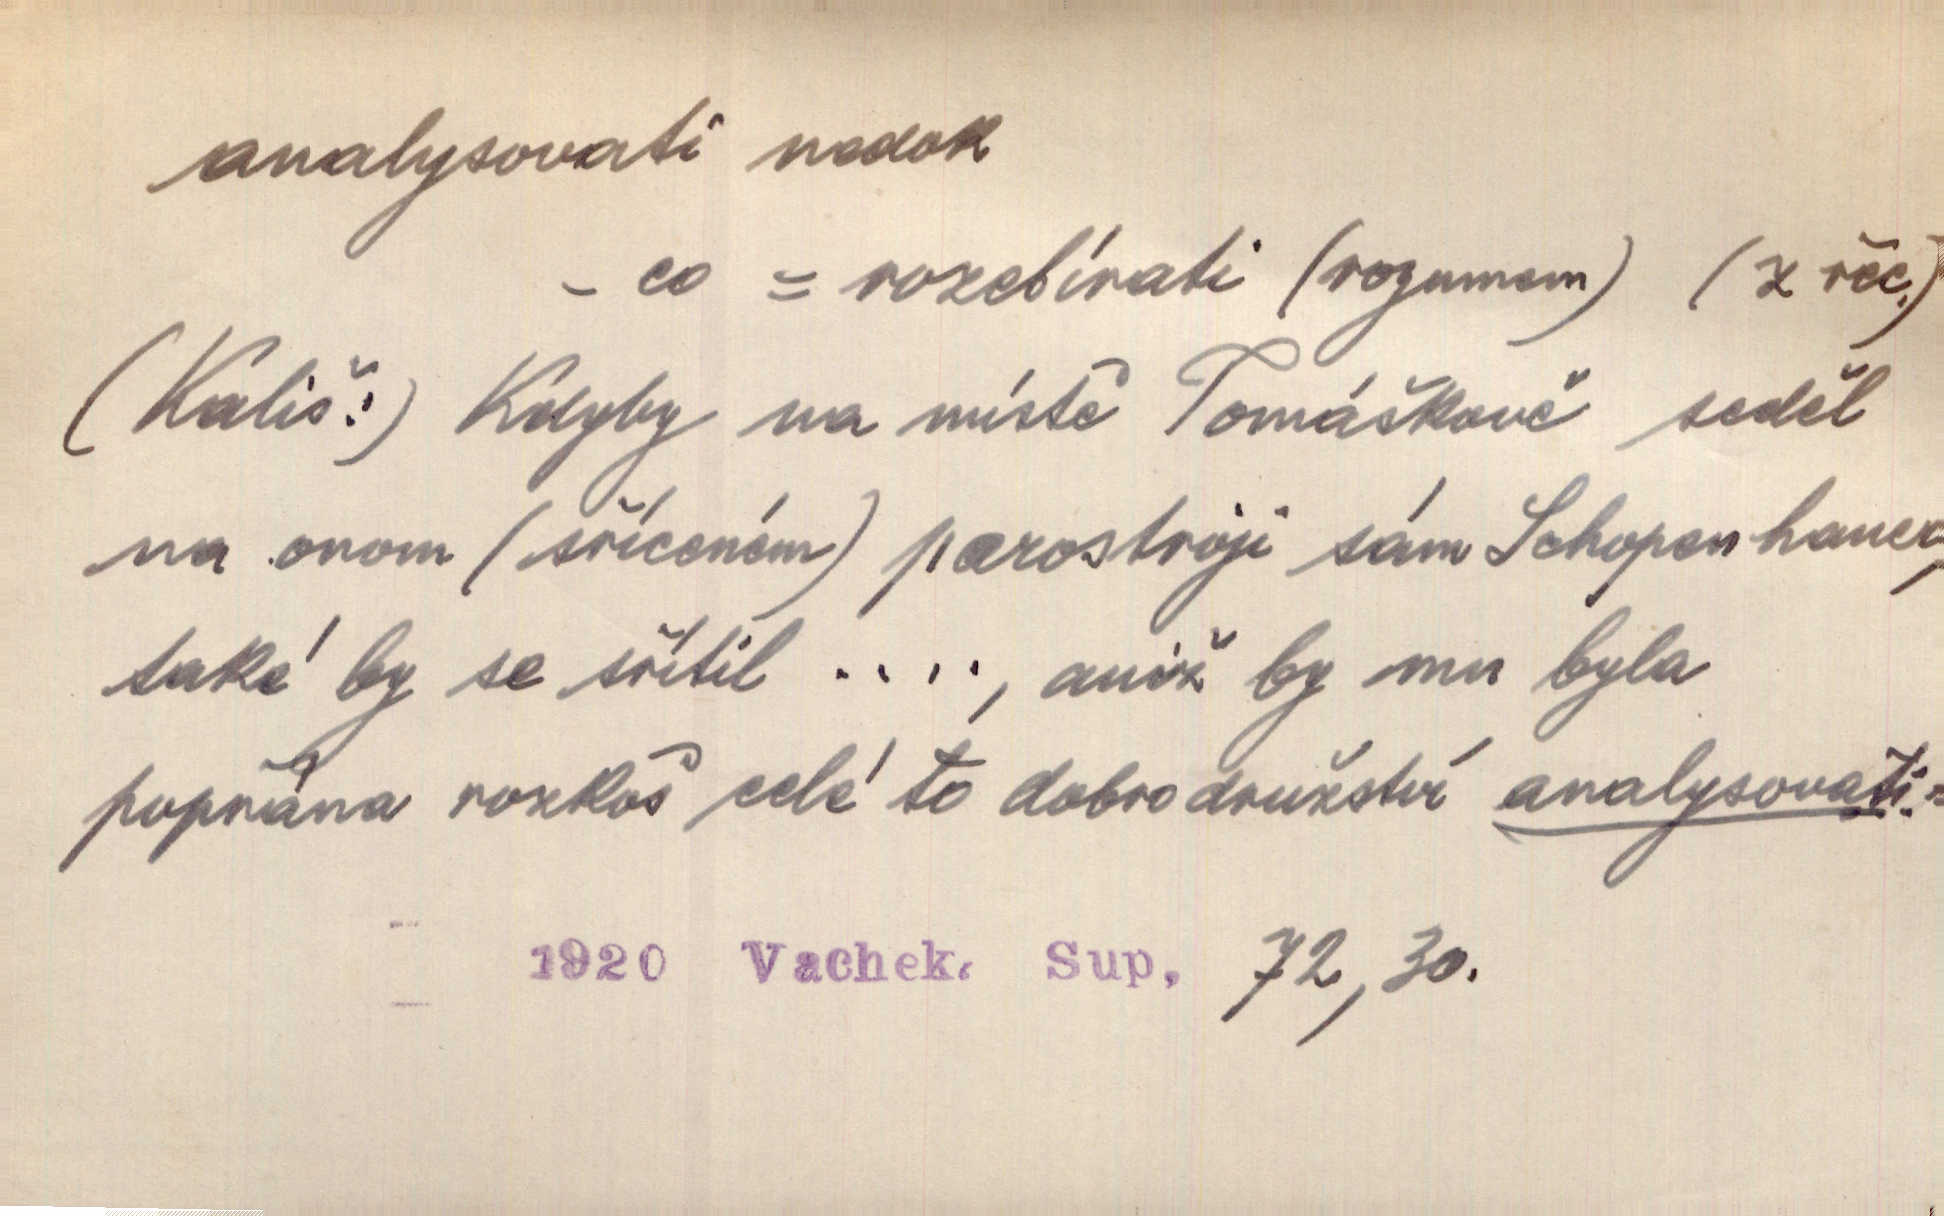 analysovati nedok
- co = rozebírati (rozumem) (z řec.)
(Kališ:) Kdyby na místě Tomáškově seděl
na onom (sříceném) parostroji sám Schopenhauer,
také by se sřítil ...., aniž by mu byla
popřána rozkoš celé to dobrodružství analysovati.=
1920 Vachek. Sup, 72,30.